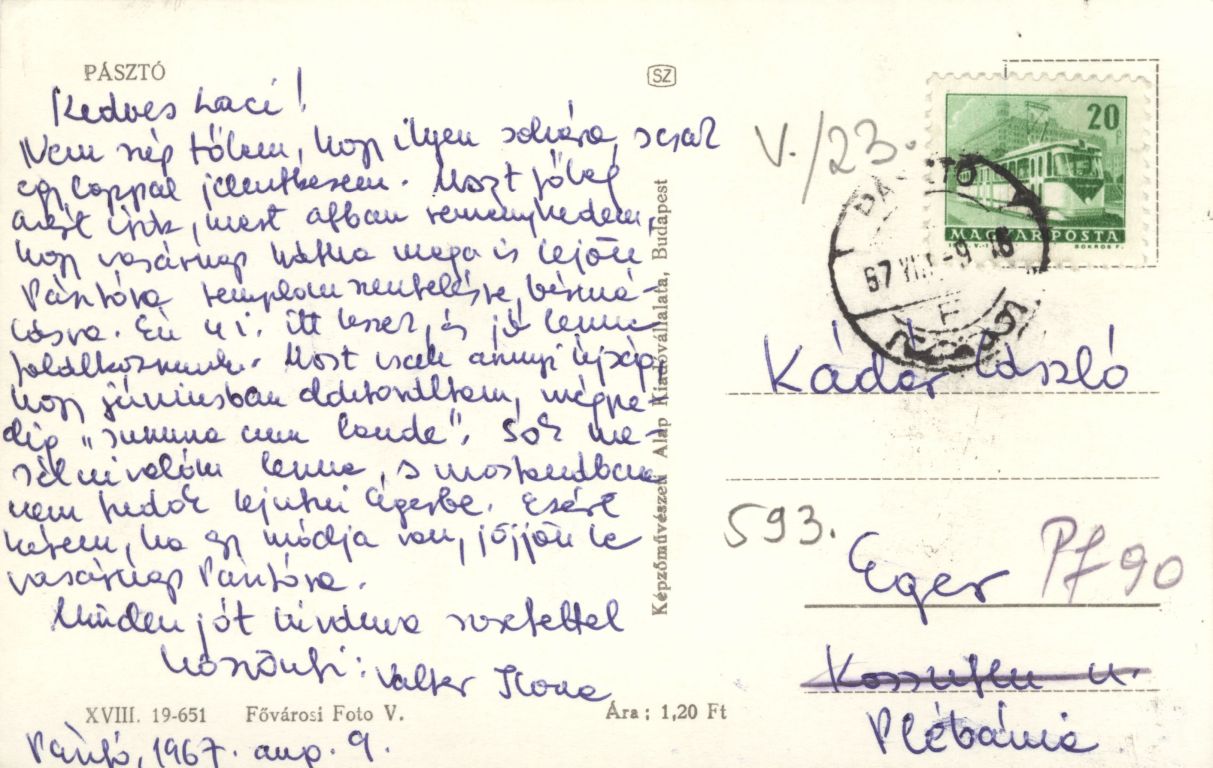 PÁSZTÓ
SZ
Kedves Laci!
Nem szép tőlem, hogy ilyen sokára, s csak
egy lappal jelentkezem. Most főleg
azért írok, mert abban reménykedem,
hogy vasárnap hátha maga is lejön
Pásztóra templomszentelésre, bérmá-
lásra. Én u.i. itt leszek, és jó lenne
találkoznunk. Most csak annyi újság,
hogy júniusban doktoráltam, mégpe-
dig „summa cum laude". Sok me-
sélnivalóm lenne, s mostanában
nem tudok eljutni Egerbe. Ezért
kérem, ha egy módja van, jöjjön le
vasárnap Pásztóra.
Minden jót kívánva szeretettel
köszönti: Valter Ilona
XVIII. 19-651 Fővárosi Foto V.
Ára: 1,20 Ft
Pásztó, 1967. aug. 9.
Képzőművészeti Alap Kiadóvállalata, Budapest
V./23.
20
MAGYAR POSTA
BOKROS F.
PÁSZTÓ
67 VIII -9 18
Kádár László
593.
Eger Pf 90
Kossuth u.
Plébánia